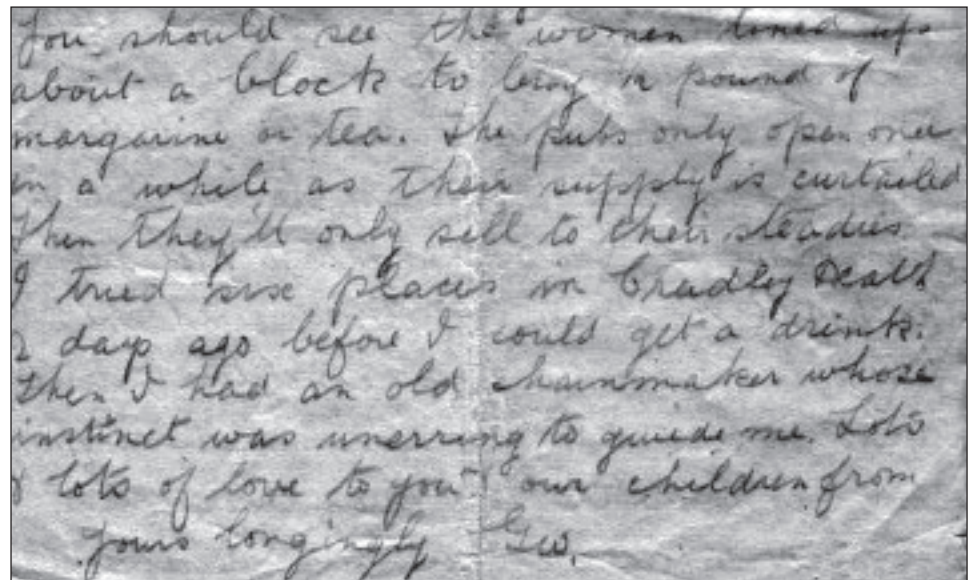 You should see the women lined up
about a block to buy ½ pound of
margarine or tea. The pubs only open once
in a while as their supply is curtailed
Then they'll only sell to their steadies
I tried six places in Cradley Heath
2 days ago before I could get a drink.
Then I had an old chainmaker whose
instinct was unerring to guide me. Lots
& lots of love to you & our children from
Yours longingly Geo.